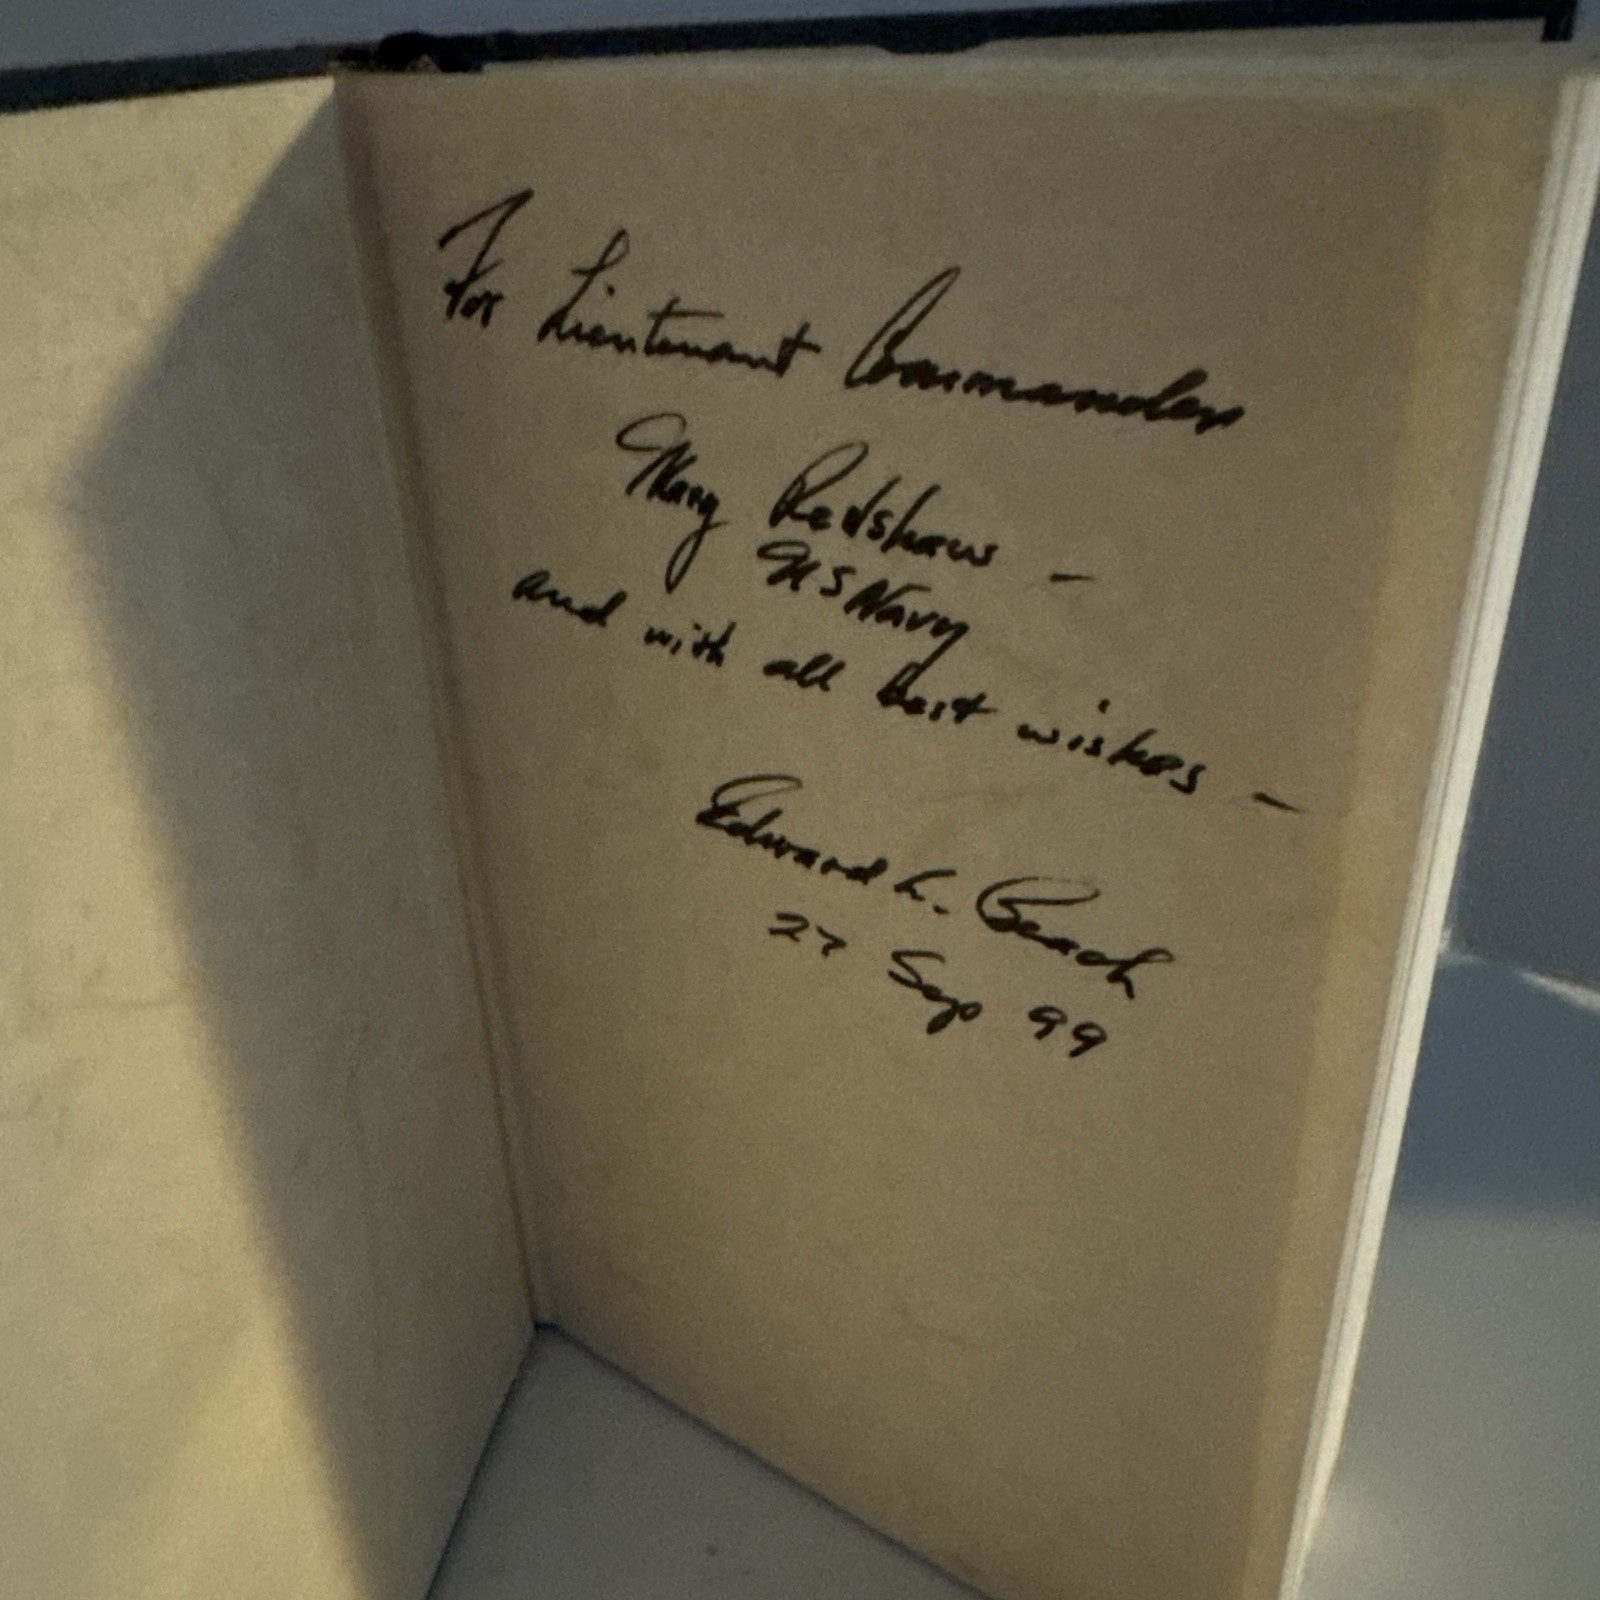 For Lieutenant Commander
Mary Redshaw –
US Navy
and with all best wishes –
Edward L. Beach
27 Sep 99